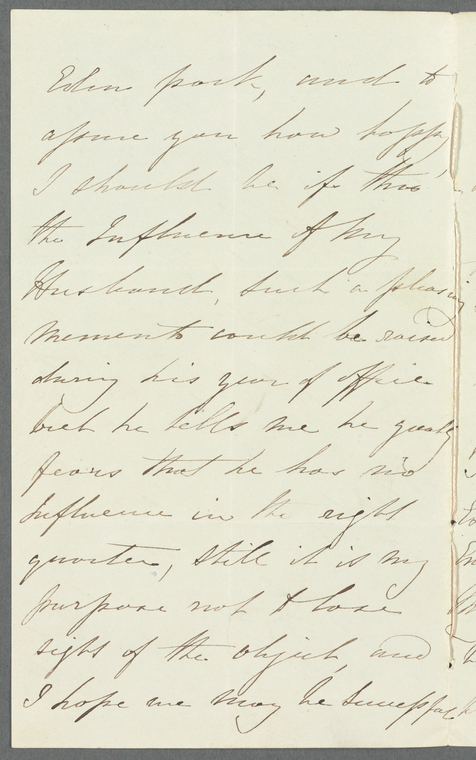 Eden park, and to
assure you how happy
I should be if thro'
the Influence of my
Husband, such a pleasing
memento could be raised
during his year of office
but he tells me he greatly
fears that he has no
Influence in the right
quarter, still it is my
purpose not to lose
sight of the object, and
I hope we may be successful